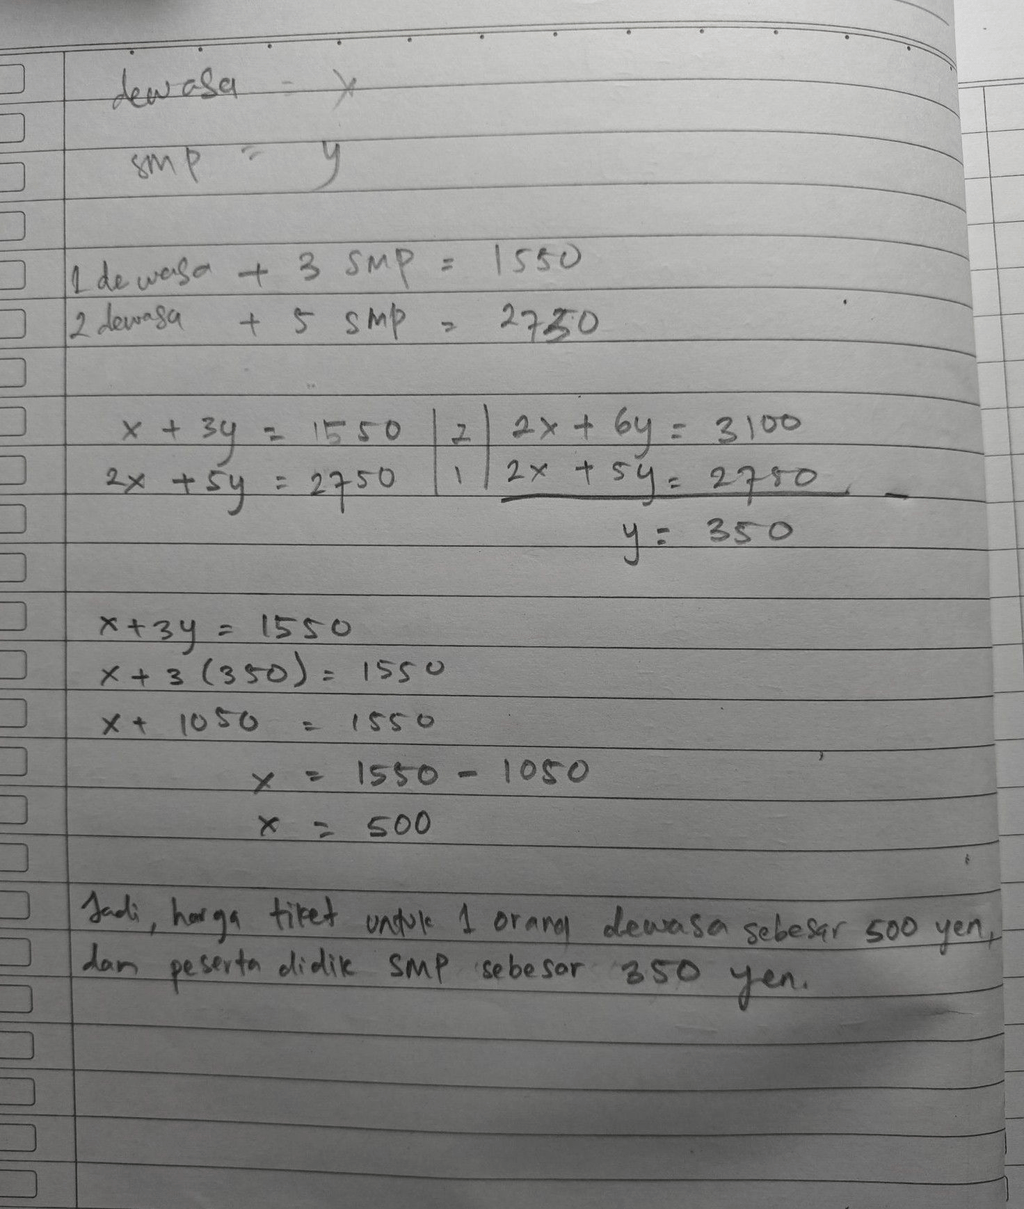 dewasa = x
smp = y
1 dewasa + 3 SMP = 1550
2 dewasa + 5 SMP = 2750
x + 3y = 1550 | 2 | 2x + 6y = 3100
2x + 5y = 2750 | 1 | 2x + 5y = 2750 -
y = 350
x + 3y = 1550
x + 3 (350) = 1550
x + 1050 = 1550
x = 1550 - 1050
x = 500
Jadi, harga tiket untuk 1 orang dewasa sebesar 500 yen,
dan peserta didik SMP sebesar 350 yen.